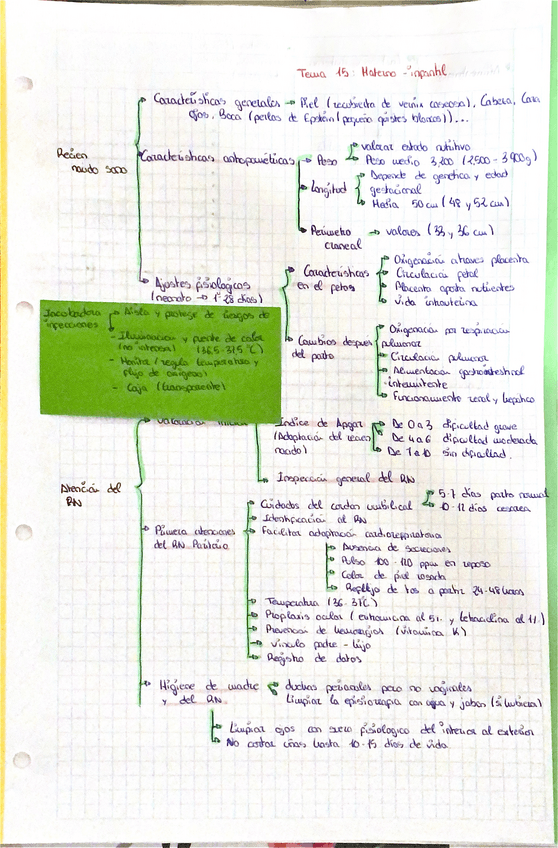 Tema 15: Materno-infantil
Características generales → Piel (recubierta de vernix caseosa), Cabeza, Cara
Ojos, Boca (perlas de Epstein (pequeños quistes blancos))...
Recien
nacido sano
Características antropométricas
Peso
valorar estado nutritivo
Peso medio 3,200 (2500 - 3900g)
Longitud
Depende de genetica y edad
gestacional
Media 50 cm (48 y 52 cm)
Perimetro
craneal
→ valores (33 y 36 cm)
Ajustes fisiológicos
(neonato → 1º 28 días)
Características
en el fetos
Oxigenación a traves placenta
Circulación fetal
Placenta aporta nutrientes
Vida intrauterina
Cambios despues
del parto
Oxigenación por respiración
pulmonar
Circulación pulmonar
Alimentación gastrointestinal
intermitente
Funcionamiento renal y hepatico
Incubadora
→ Aisla y protege de riesgos de
infecciones
- Iluminación y fuente de calor
(no intensa) (36,5-37,5 ºC)
- Monitor (regula temperatura y
flujo de oxigeno)
- Caja (transparente)
Atención del
RN
Valoración inicial
Índice de Apgar
(Adaptación del recien
nacido)
De 0 a 3 dificultad grave
De 4 a 6 dificultad moderada
De 7 a 10 sin dificultad.
Inspección general del RN
Primera atenciones
del RN Paritorio
Cuidados del cordon umbilical
5-7 días parto normal
10-12 días cesarea
Identificación al RN
Facilitar adaptación cardiorespiratoria
Ausencia de secreciones
Pulso 100-120 ppm en reposo
Color de piel rosada
Reflejo de tos a partir 24-48 horas
Temperatura (36-37ºC)
Profilaxis ocular (eritromicina al 5%. y tetraciclina al 1%.)
Prevención de hemorragias (vitamina K)
Vinculo padre - hijo
Registro de datos
Higiene de madre
y del RN.
duchas perineales pero no vaginales
Limpiar la episiotomia con agua y jabon (si hubiera)
Limpiar ojos con suero fisiologico del interior al exterior
No cortar uñas hasta 10-15 días de vida.